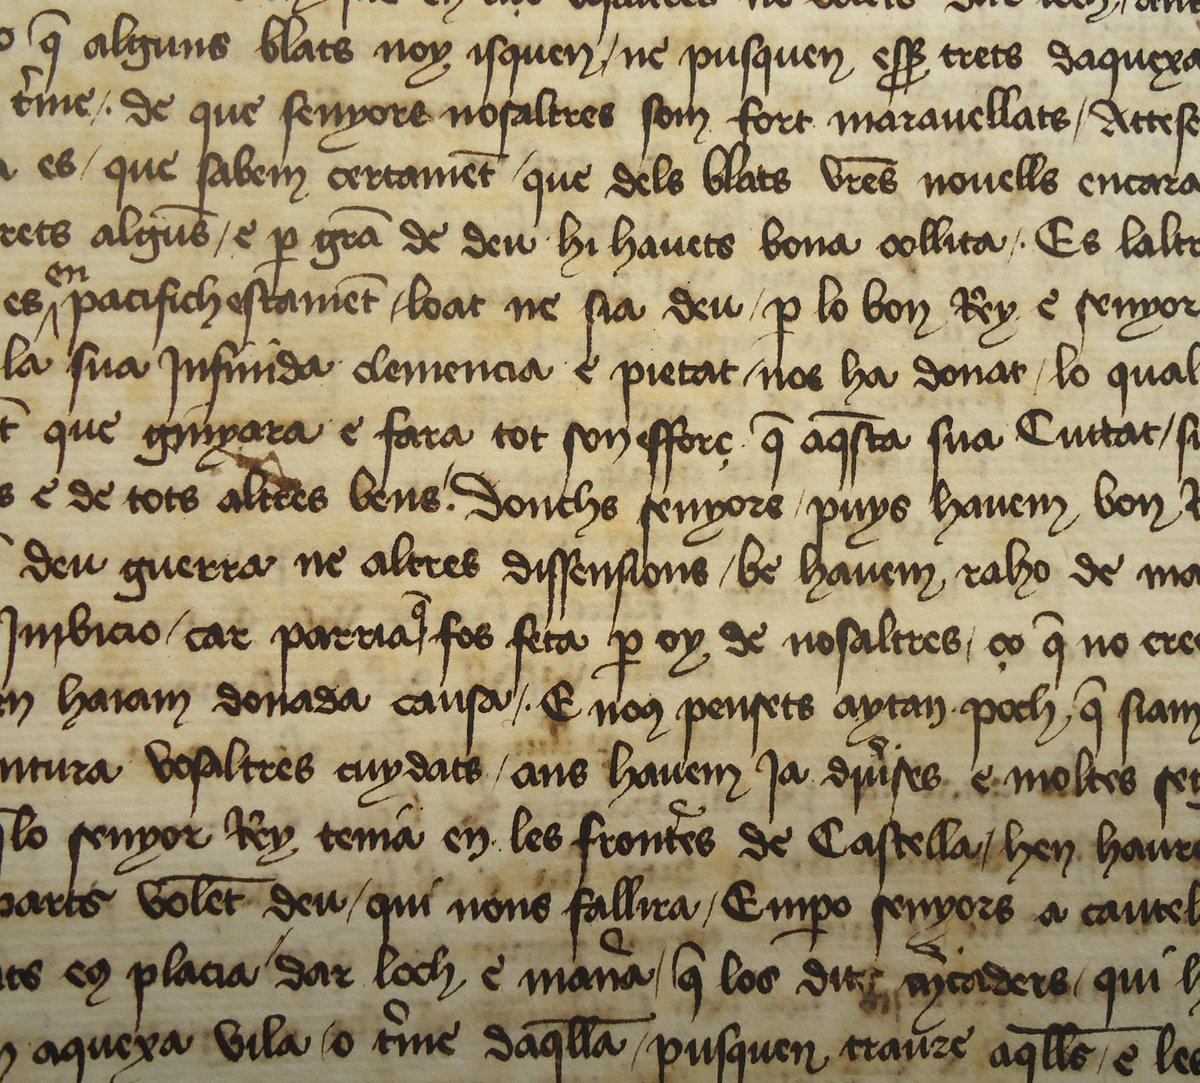 q̄ alguns blats noy isquen / ne pusquen esser trets daquexa
t̉me /. de que senyors nosaltres som fort marauellats / Attese
es / que sabem certamēt / que dels blats vrēs nouells encara
trets algūs / e ꝑ grā de deu hi hauets bona collita /. Es laltr
es en pacifich estamēt / loat ne sia deu / ꝑ lo bon Rey e senyor
la sua Infinida clemencia e pietat / nos ha donat / lo qual
que ginyara e fara tot son efforç q̄ aq̄sta sua Ciutat / si
s e de tots altres bens /. Donchs senyors / puys hauem bon R
deu guerra ne altres dissensions / be hauem raho de ma
car parria q̄ fos feta ꝑ oy de nosaltres / ço q̄ no cre
en haiam donada causa /. E noy pensets aytan poch q̄ siam
ntura vosaltres cuydats / ans hauem Ja diūses e moltes
q̄lo senyor Rey tenia en les front̉es de Castella / hen haure
parts volēt deu / qui nons fallira / Emꝑo senyors a cautel
ts eŋ placia dar loch e man̉a / q̄ los dits m̉caders / qui h
n aquexa vila / o t̉me daq̄lla / pusquen traure aq̄lls / e les